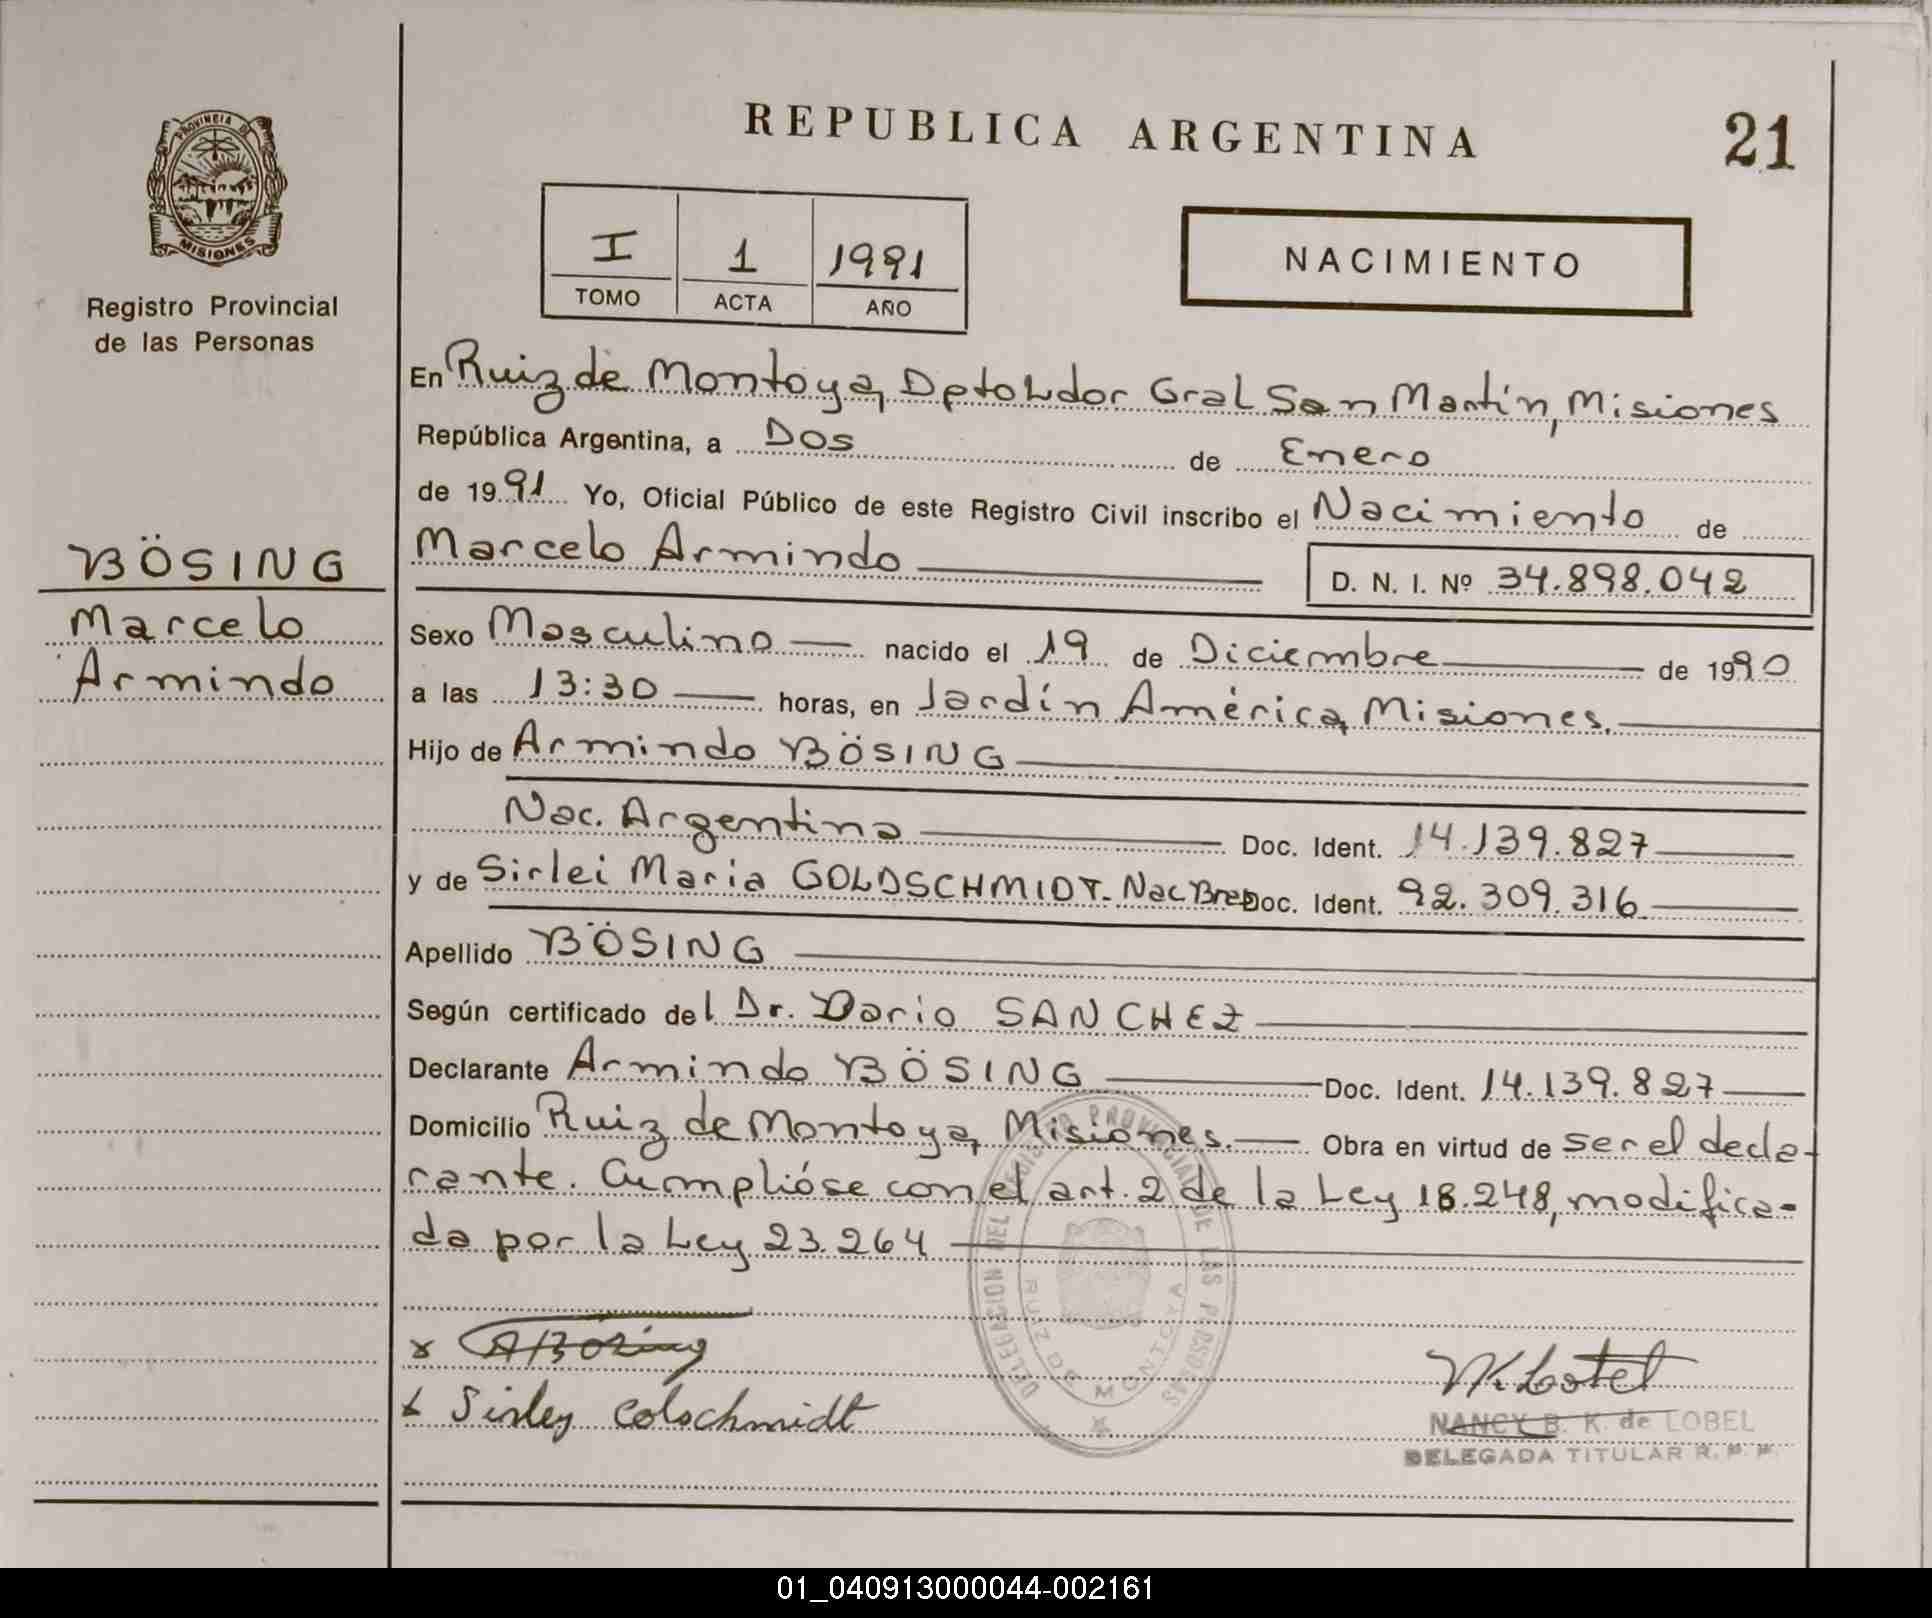 REPUBLICA ARGENTINA
21
PROVINCIA DE
MISIONES
Registro Provincial
de las Personas
I
TOMO
1
ACTA
1991
AÑO
NACIMIENTO
BÖSING
Marcelo
Armindo
En Ruiz de Montoya, Dpto Ldor Gral San Martín, Misiones
República Argentina, a Dos de Enero
de 1991 Yo, Oficial Público de este Registro Civil inscribo el Nacimiento de
Marcelo Armindo D. N. I. Nº 34.898.042
Sexo Masculino nacido el 19 de Diciembre de 1990
a las 13:30 horas, en Jardín América, Misiones.
Hijo de Armindo BÖSING
Nac. Argentina Doc. Ident. 14.139.827
y de Sirlei Maria GOLDSCHMIDT. Nac Bra Doc. Ident. 92.309.316
Apellido BÖSING
Según certificado del Dr. Dario SANCHEZ
Declarante Armindo BÖSING Doc. Ident. 14.139.827
Domicilio Ruiz de Montoya, Misiones. Obra en virtud de ser el decla-
rante. Cumplióse con el art. 2 de la Ley 18.248, modifica-
da por la Ley 23.264
DELEGACION DEL REGISTRO PROVINCIAL DE LAS PERSONAS
RUIZ DE MONTOYA
x ABösing
x Sirley Colschmidt
NK Lobel
NANCY B. K. de LOBEL
DELEGADA TITULAR R. P. P.
01_040913000044-002161